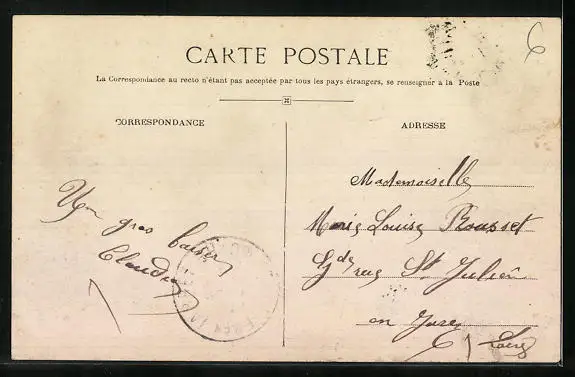 6
CARTE POSTALE
La Correspondance au recto n'étant pas acceptée par tous les pays étrangers, se renseigner à la Poste
CORRESPONDANCE
ADRESSE
Un gros baiser
Claudia
Mademoiselle
Marie Louise Rousset
Gde rue St Julien
en Jarez
Loire